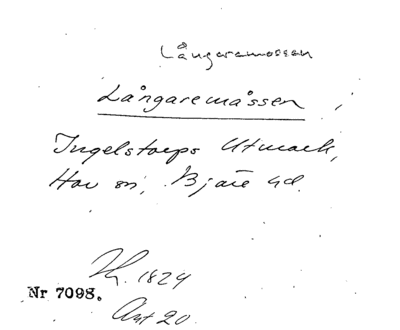 Långaremossen
Långaremåssen
Ingelstorps Utmark,
Hov sn, Bjäre hd.
1824
Nr 7098.
Akt 20